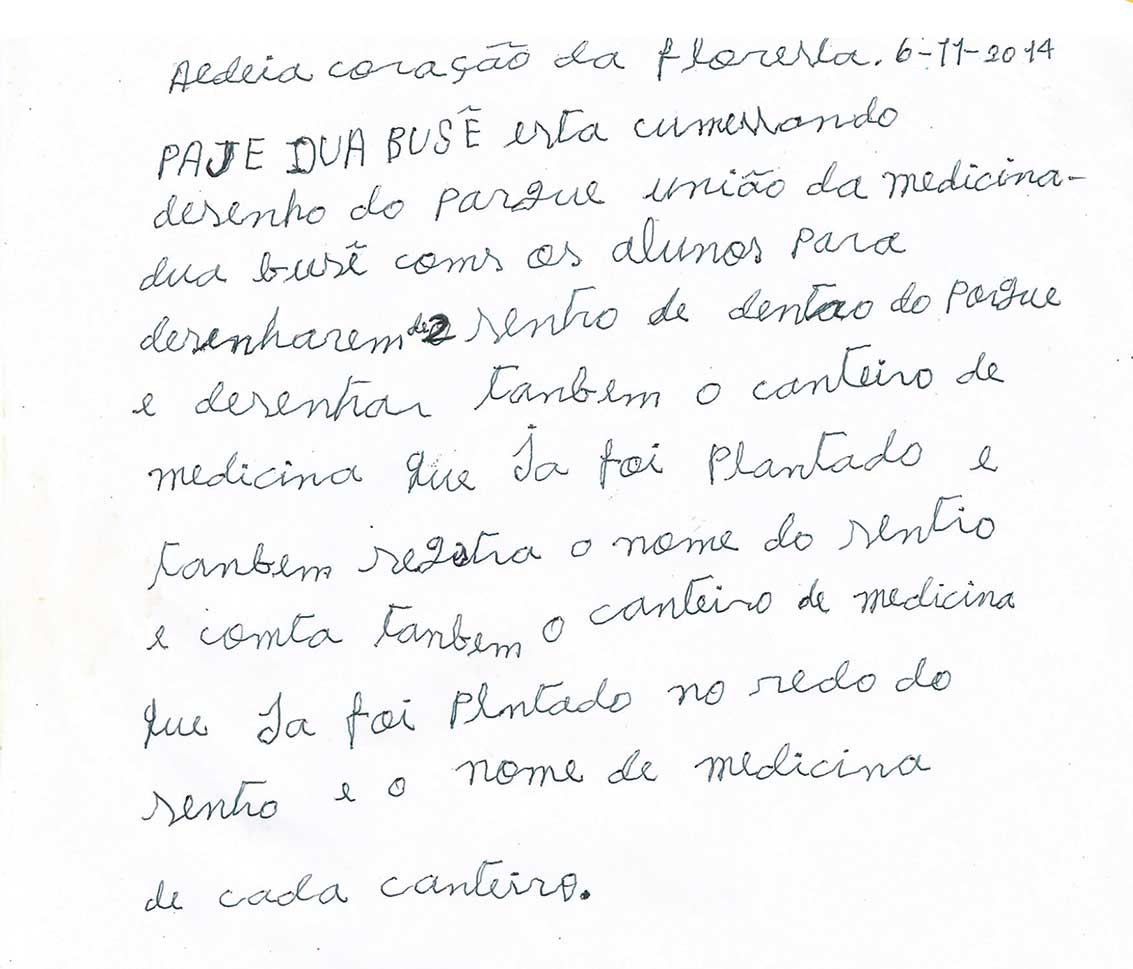 Aldeia coração da floresta. 6-11-2014
PAJE DUA BUSẼ esta cumessando
desenho do parque união da medicina-
dua busẽ coms os alunos para
desenharem de 2 sentro de dentro do parque
e desenhar tanbem o canteiro de
medicina que Ja foi plantado e
tanbem registra o nome do sentro
e comta tanbem o canteiro de medicina
que Ja foi plntado no redo do
sentro e o nome de medicina
de cada canteiro.